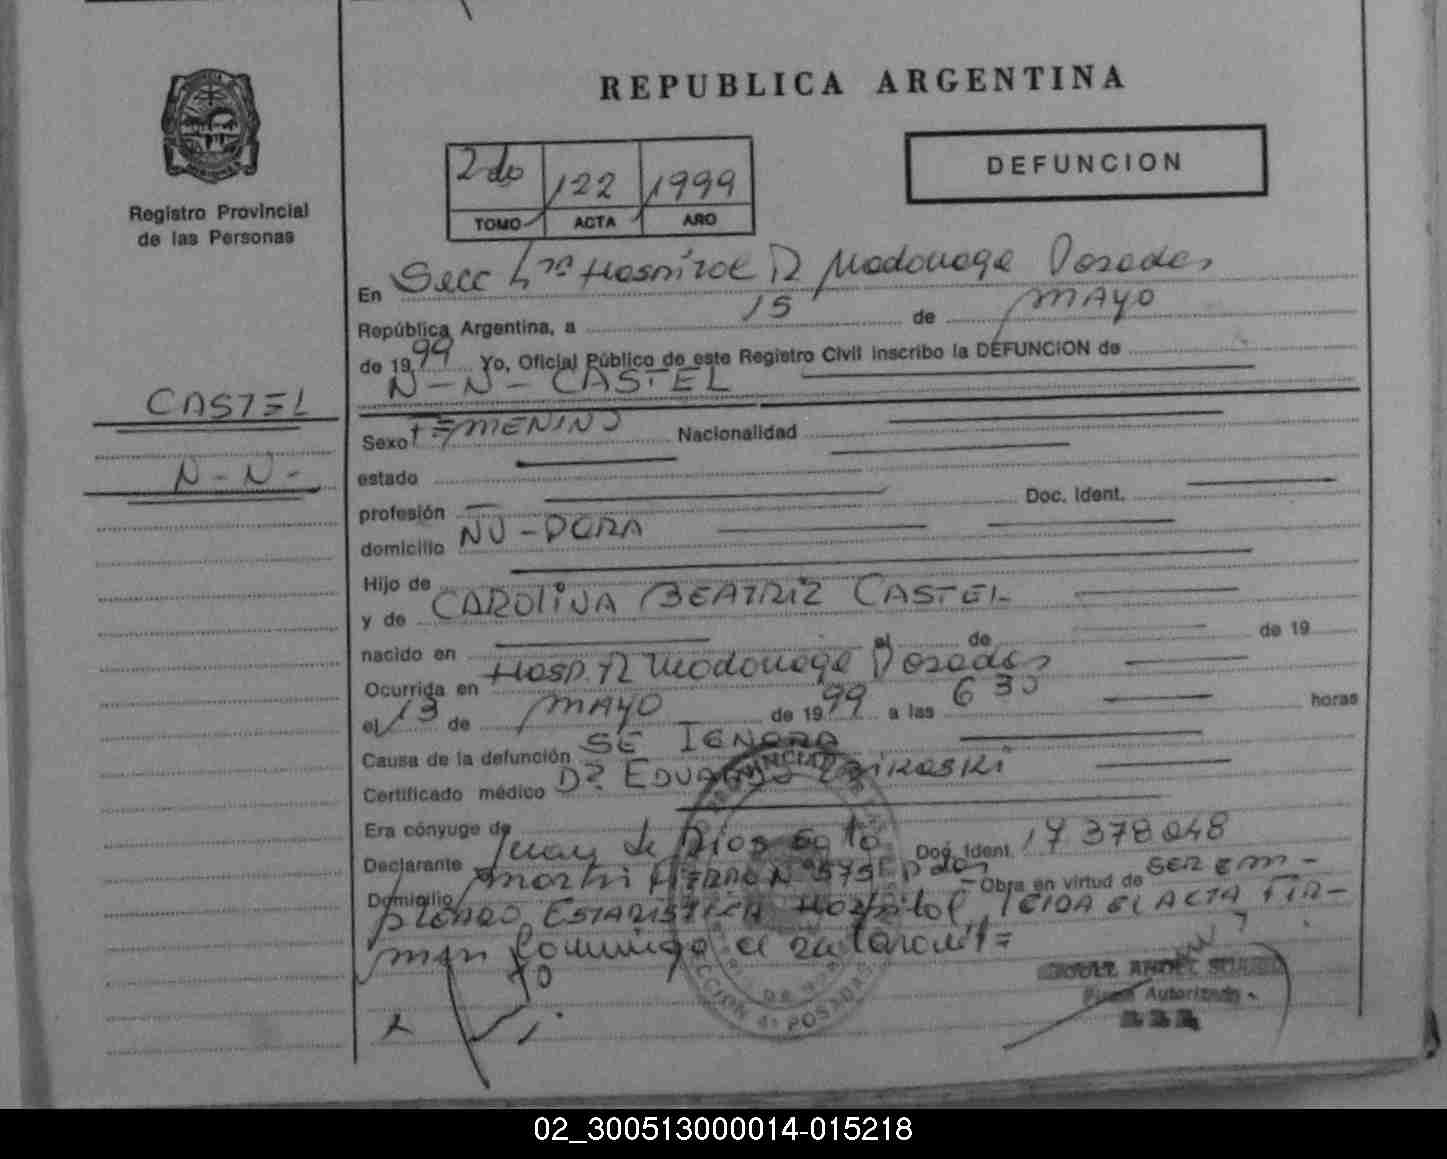 REPUBLICA ARGENTINA
DEFUNCION
2do 122 1999
TOMO ACTA AÑO
Registro Provincial
de las Personas
CASTEL
N-N-
En Secc Hospital R Madariaga Posadas
República Argentina, a 15 de MAYO
de 1999 Yo, Oficial Público de este Registro Civil inscribo la DEFUNCION de
N-N-CASTEL
Sexo FEMENINO Nacionalidad
estado
profesión Doc. Ident.
domicilio
Hijo de
y de CAROLINA BEATRIZ CASTEL
nacido en el de de 19
Ocurrida en Hosp. R Madariaga Posadas
el 13 de MAYO de 1999 a las 6 30 horas
Causa de la defunción SE IGNORA
Certificado médico Dr EDUARDO
Era cónyuge de
Declarante Juan de Dios Doc. Ident. 17 378 048
Domicilio Obra en virtud de SER EM-
PLEADO ESTADISTICA Hospital LEIDA EL ACTA FIR-
man conmigo el
Firma Autorizada
02_300513000014-015218